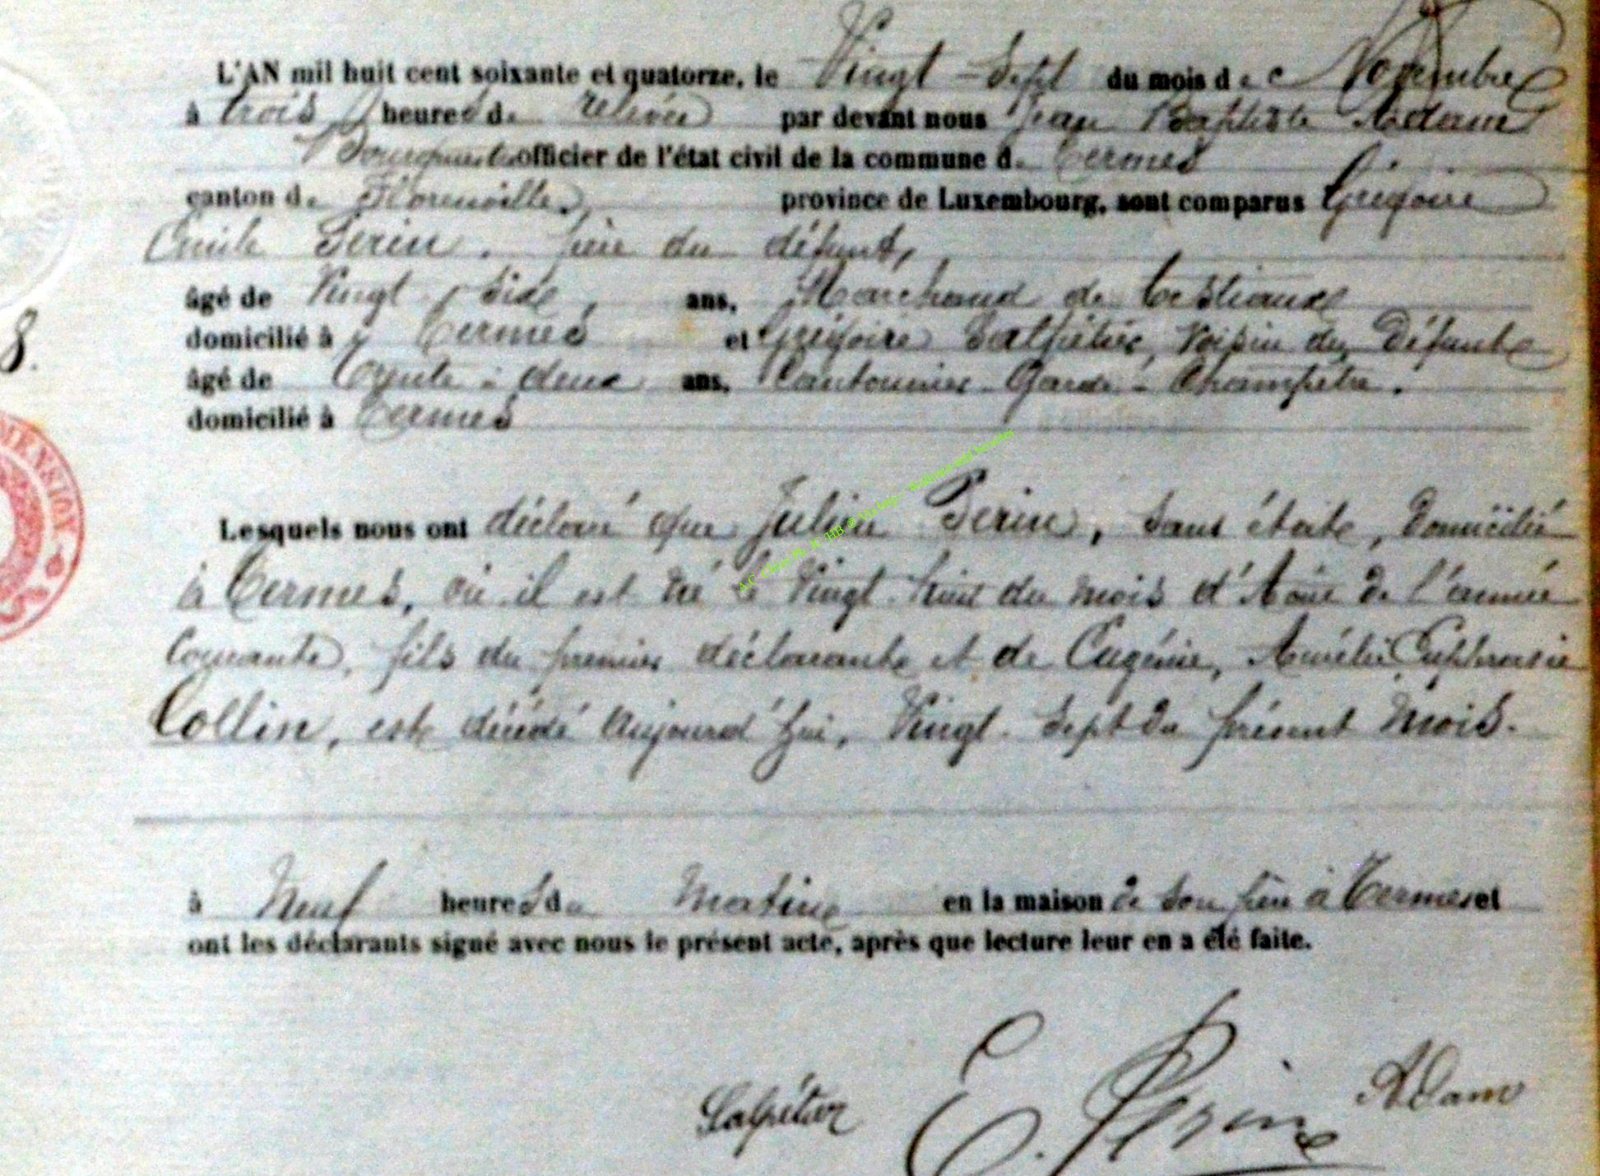 L'AN mil huit cent soixante et quatorze, le Vingt-Sept du mois de Novembre
à trois heures de relevée par devant nous Jean Baptiste Adam
Bourgmestre officier de l'état civil de la commune de Termes
canton de Florenville, province de Luxembourg, sont comparus Grégoire
Emile Perin, père du défunt,
âgé de Vingt-Six ans, Marchand de bestiaux
domicilié à Termes et Grégoire Salpétier, Voisin du Défunt
âgé de Trente-deux ans, Cantonnier Garde-Champêtre.
domicilié à Termes
8.
Lesquels nous ont déclaré que Julien Perin, Sans état, Domicilié
à Termes, où il est né le Vingt huit du mois d'Août de l'année
Courante, fils du premier déclarant et de Eugénie, Aurélie Euphrasie
Collin, est décédé aujourd'hui, Vingt-Sept du présent Mois.
à Neuf heures du Matin en la maison de Son père à Termes et
ont les déclarants signé avec nous le présent acte, après que lecture leur en a été faite.
Salpétier E. Perin Adam